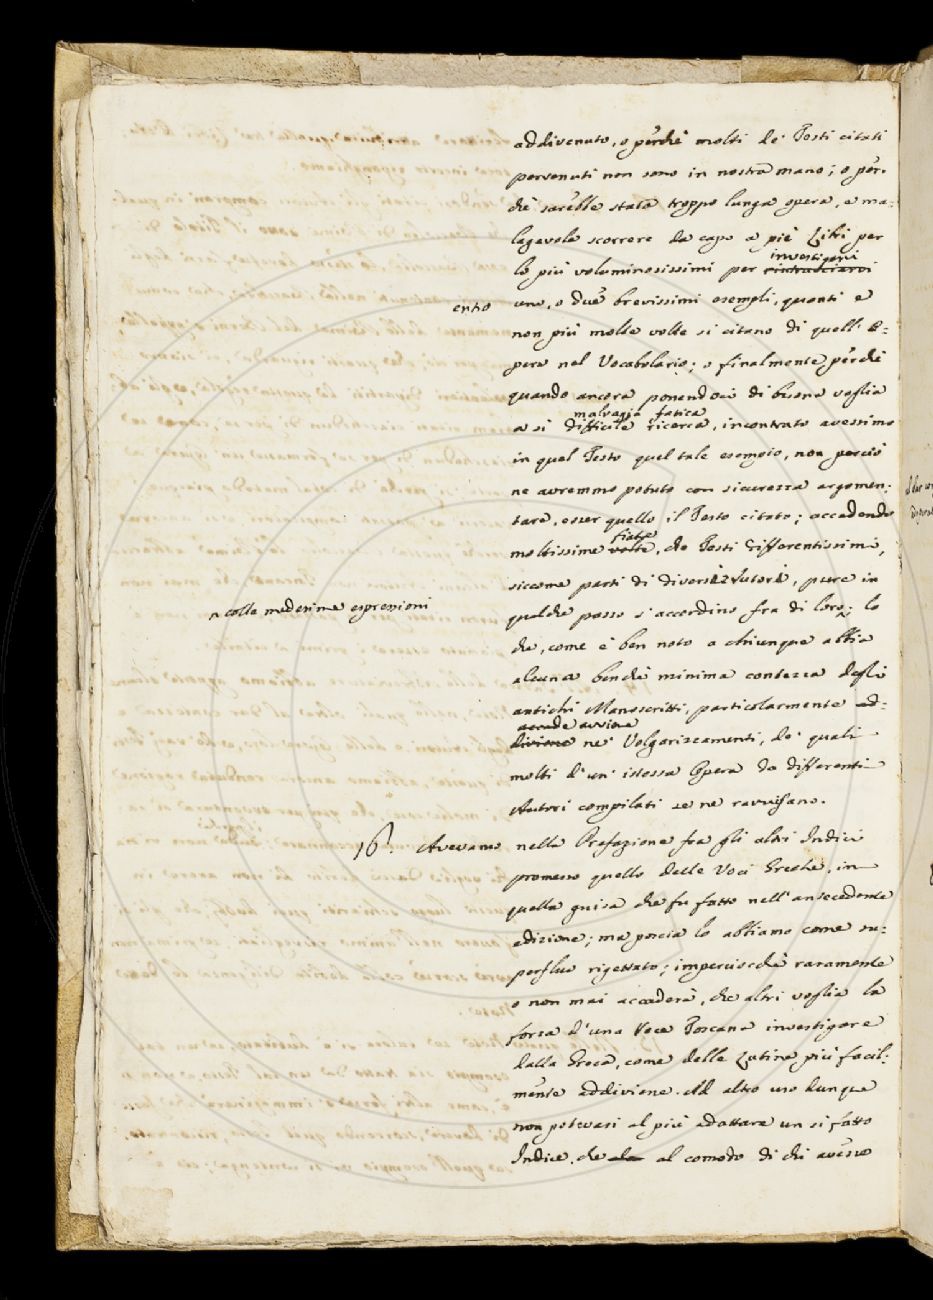 addivenuto, o perchè molti de' Testi citati
pervenuti non sono in nostra mano; o per-
chè sarebbe stata troppo lunga opera, e ma-
lagevole scorrere da capo a piè Libri per
investigarvi
lo più voluminosissimi per rintracciarvi
ento uno, o due brevissimi esempli, quanti e
non più molte volte si citano di quell' O-
pera nel Vocabolario; o finalmente perchè
quando ancora ponendoci di buona voglia
malvagia fatica
a si difficile ricerca, incontrato avessimo
in quel Testo quel tale esempio, non perciò
ne avremmo potuto con sicurezza argomen-
tare, esser quello il Testo citato; accadendo
fiate
moltissime volte, che Testi differentissimi,
siccome parti di diversi Autori, pure in
^ colle medesime espressioni
qualche passo s'accordino fra di loro^; lo
che, come è ben noto a chiunque abbia
alcuna benchè minima contezza degli
antichi Manoscritti, particolarmente ad-
accade avviene
diviene ne' Volgarizzamenti, de' quali
molti d'un' istessa Opera da differenti
Autori compilati se ne ravvisano.
16. Avevamo nella Prefazione fra gli altri Indici
promesso quello delle Voci Greche, in
quella guisa che fu fatto nell' antecedente
edizione; ma poscia lo abbiamo come su-
perfluo rigettato; imperciocchè raramente
o non mai accaderà, che altri voglia la
forza d'una Voce Toscana investigare
dalla Greca, come dalla Latina più facil-
mente addiviene. Ad altro uso dunque
non potevasi al più adattare un sì fatto
Indice, che al comodo di chi avesse